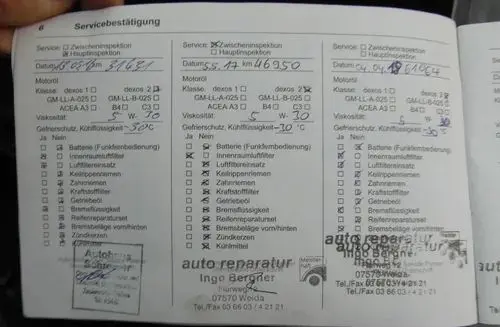 6 Servicebestätigung
Service: ☐ Zwischeninspektion
☒ Hauptinspektion
Datum km 31431
Motoröl
Klasse: dexos 1 ☐ dexos 2 ☒
GM-LL-A-025 ☐ GM-LL-B-025 ☐
ACEA A3 ☐ B4 ☐ C3 ☐
Viskosität: 5 W- 30
Gefrierschutz, Kühlflüssigkeit -30 °C
Ja Nein
Batterie (Funkfernbedienung)
Innenraumluftfilter
Luftfiltereinsatz
Keilrippenriemen
Zahnriemen
Kraftstofffilter
Getriebeöl
Bremsflüssigkeit
Reifenreparaturset
Bremsbeläge vorn/hinten
Zündkerzen
Kühlmittel
Autohaus
Service: ☒ Zwischeninspektion
☐ Hauptinspektion
Datum 17 km 46950
Motoröl
Klasse: dexos 1 ☐ dexos 2 ☒
GM-LL-A-025 ☐ GM-LL-B-025 ☐
ACEA A3 ☐ B4 ☐ C3 ☐
Viskosität: 5 W- 30
Gefrierschutz, Kühlflüssigkeit -30 °C
Ja Nein
Batterie (Funkfernbedienung)
Innenraumluftfilter
Luftfiltereinsatz
Keilrippenriemen
Zahnriemen
Kraftstofffilter
Getriebeöl
Bremsflüssigkeit
Reifenreparaturset
Bremsbeläge vorn/hinten
Zündkerzen
Kühlmittel
auto reparatur
Ingo Bergner
07570 Weida
Tel./Fax 03 66 03 / 4 21 21
Service: ☐ Zwischeninspektion
☐ Hauptinspektion
Datum 04.04.18 61064
Motoröl
Klasse: dexos 1 ☐ dexos 2 ☒
GM-LL-A-025 ☐ GM-LL-B-025 ☐
ACEA A3 ☐ B4 ☐ C3 ☐
Viskosität: 5 W- 30
Gefrierschutz, Kühlflüssigkeit -30 °C
Ja Nein
Batterie (Funkfernbedienung)
Innenraumluftfilter
Luftfiltereinsatz
Keilrippenriemen
Zahnriemen
Kraftstofffilter
Getriebeöl
Bremsflüssigkeit
Reifenreparaturset
Bremsbeläge vorn/hinten
Zündkerzen
auto reparatur
Ingo Bergner
Tel./Fax 03 66 03 / 4 21 21